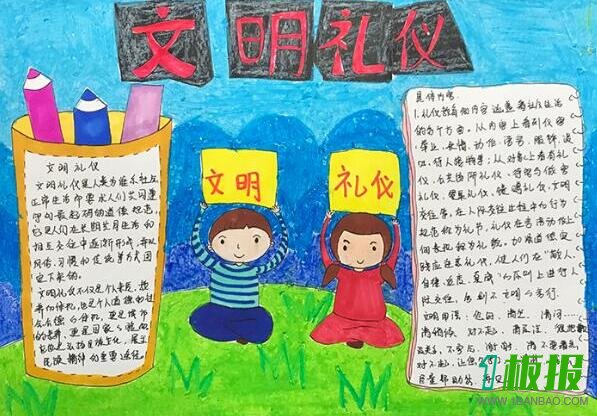 文明礼仪
文明
礼仪
文明 礼仪
文明礼仪是人类为维系社会
正常生活而要求人们共同遵
守的最起码的道德规范，
它是人们在长期共同生活和
相互交往中逐渐形成，并以
风俗、习惯和传统等方式固
定下来的。
文明礼仪不仅是个人素质、教
养的体现，也是个人道德和社
具体内容
1.礼仪教育的内容涵盖着社会生活
的各个方面。从内容上看有仪容
举止、表情、服饰、谈
吐、待人接物等；从对象上看有礼
仪、公共场所礼仪、待客与做客
礼仪、餐桌礼仪、馈赠礼仪、文明
交往等。在人际交往过程中的行为
规范称为礼节，礼仪在言语动作上
的表现称为礼貌。加强道德实
践应注意礼仪，使人们在“敬人、
自律、适度、真诚”的原则上进行人
际交往，告别不文明的言行。
文明用语：您的、请坐、请问……
对不起
1板报
WWW.1BANBAO.COM